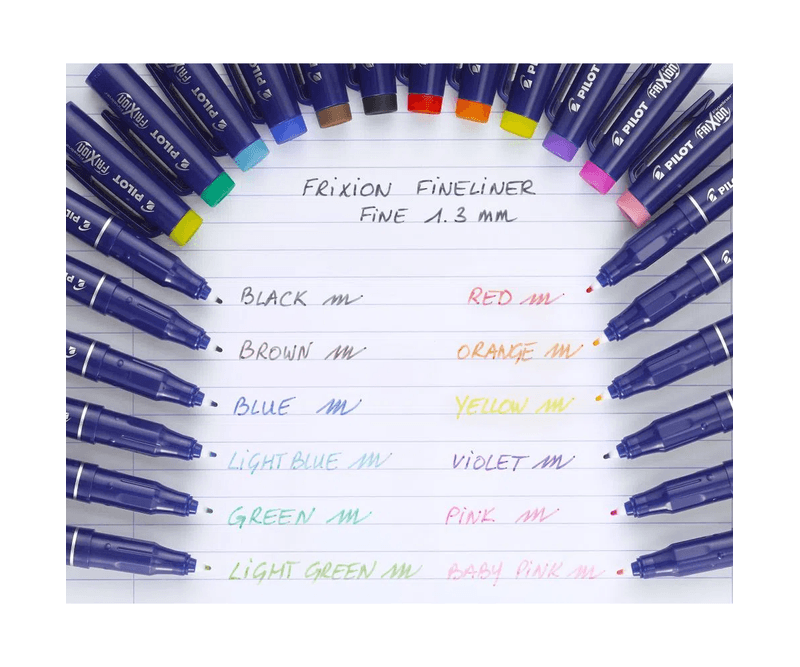 FRIXION PILOT
FRIXION PILOT
FRIXION PILOT
PILOT
PILOT
PILOT FRIXION
PILOT FRIXION
FRIXION FINELINER
FINE 1.3 mm
BLACK
RED
BROWN
ORANGE
BLUE
YELLOW
LIGHT BLUE
VIOLET
GREEN
PINK
LIGHT GREEN
BABY PINK